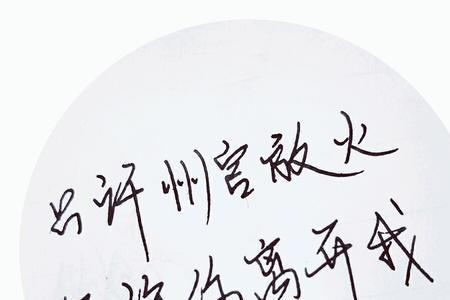 只许州官放火
许你离开我